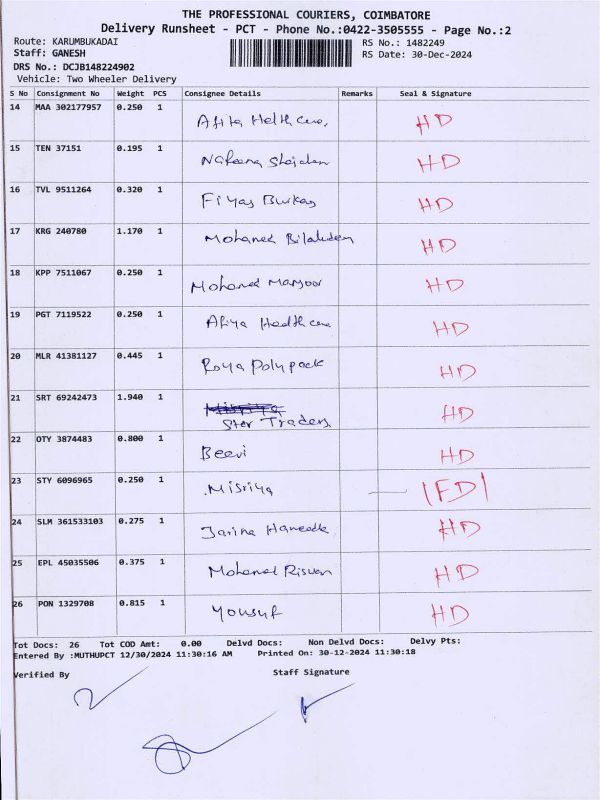 THE PROFESSIONAL COURIERS, COIMBATORE
Delivery Runsheet - PCT - Phone No.:0422-3505555 - Page No.:2
Route: KARUMBUKADAI RS No.: 1482249
Staff: GANESH RS Date: 30-Dec-2024
DRS No.: DCJB148224902
Vehicle: Two Wheeler Delivery
S No Consignment No Weight PCS Consignee Details Remarks Seal & Signature
14 MAA 302177957 0.250 1 Afiya Helth care. HD
15 TEN 37151 0.195 1 HD
16 TVL 9511264 0.320 1 Fiyas HD
17 KRG 240780 1.170 1 Mohamed HD
18 KPP 7511067 0.250 1 Mohamed Mansoor HD
19 PGT 7119522 0.250 1 Afiya Health care HD
20 MLR 41381127 0.445 1 Roya Polypack HD
21 SRT 69242473 1.940 1 Star Traders HD
22 OTY 3874483 0.800 1 Beevi HD
23 STY 6096965 0.250 1 Misriya (FD)
24 SLM 361533103 0.275 1 Jarina HD
25 EPL 45035506 0.375 1 Mohamed Riswan HD
26 PON 1329708 0.815 1 Yousuf HD
Tot Docs: 26 Tot COD Amt: 0.00 Delvd Docs: Non Delvd Docs: Delvy Pts:
Entered By :MUTHUPCT 12/30/2024 11:30:16 AM Printed On: 30-12-2024 11:30:18
Verified By Staff Signature